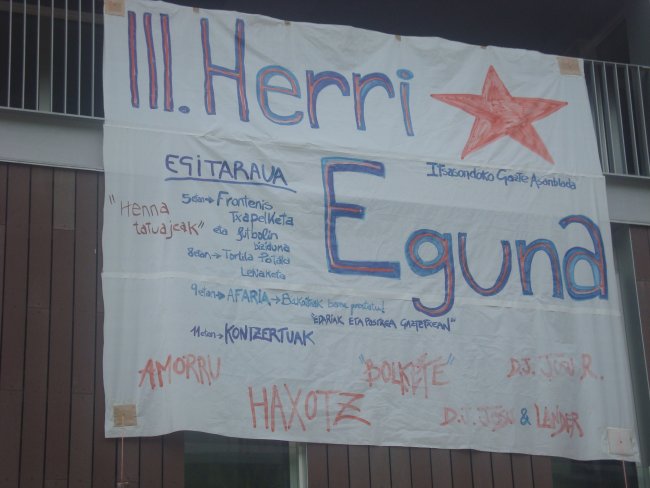 III. Herri
Eguna
Itsasondoko Gazte Asanblada
EGITARAUA
5etan → Frontenis
Txapelketa
eta futbolin
biziduna
8etan → Tortila Patata
Lehiaketa
9etan → AFARIA → Bakoitzak bere prestatu!
"EDARIAK ETA POSTREA GAZTETXEAN"
11etan → KONTZERTUAK
"Henna
tatuajeak"
AMORRU
HAXOTZ
"BOLKETE"
D.J. JOSU R.
D.J. JOSU & LANDER